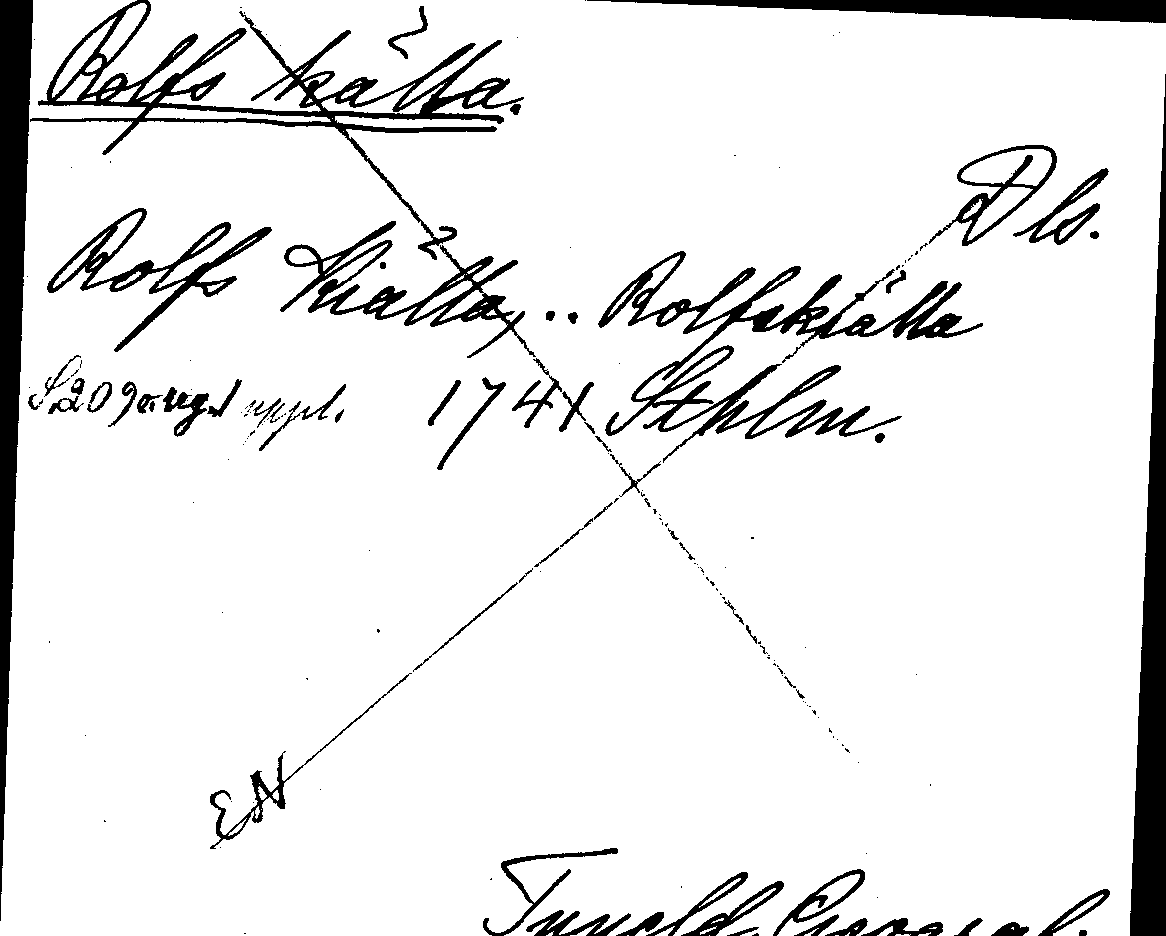 Rolfs källa.
Dls.
Rolfs Kiälla, .. Rolfskiälla
S.209 orig.uppl. 1741 Sthlm.
EN
Tuneld, Geograf.